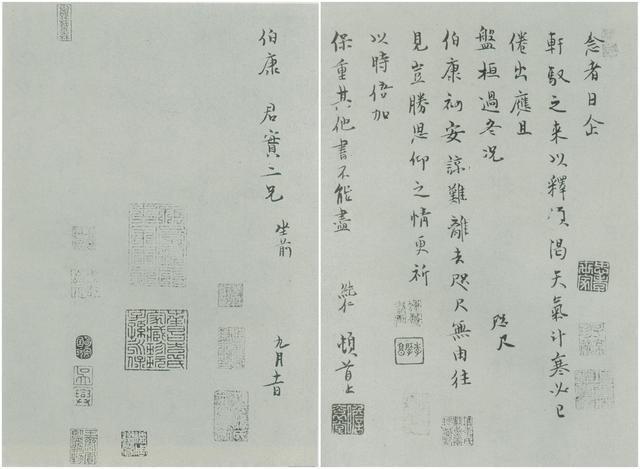 念者日企
軒馭之來以釋傾渴天氣計寒必已
倦出應且
盤桓過冬況
咫尺
伯康初安諒難離去咫尺無由往
見豈勝思仰之情更祈
以時倍加
保重其他書不能盡 純仁 頓首上
伯康 君實二兄 坐前
九月十一日